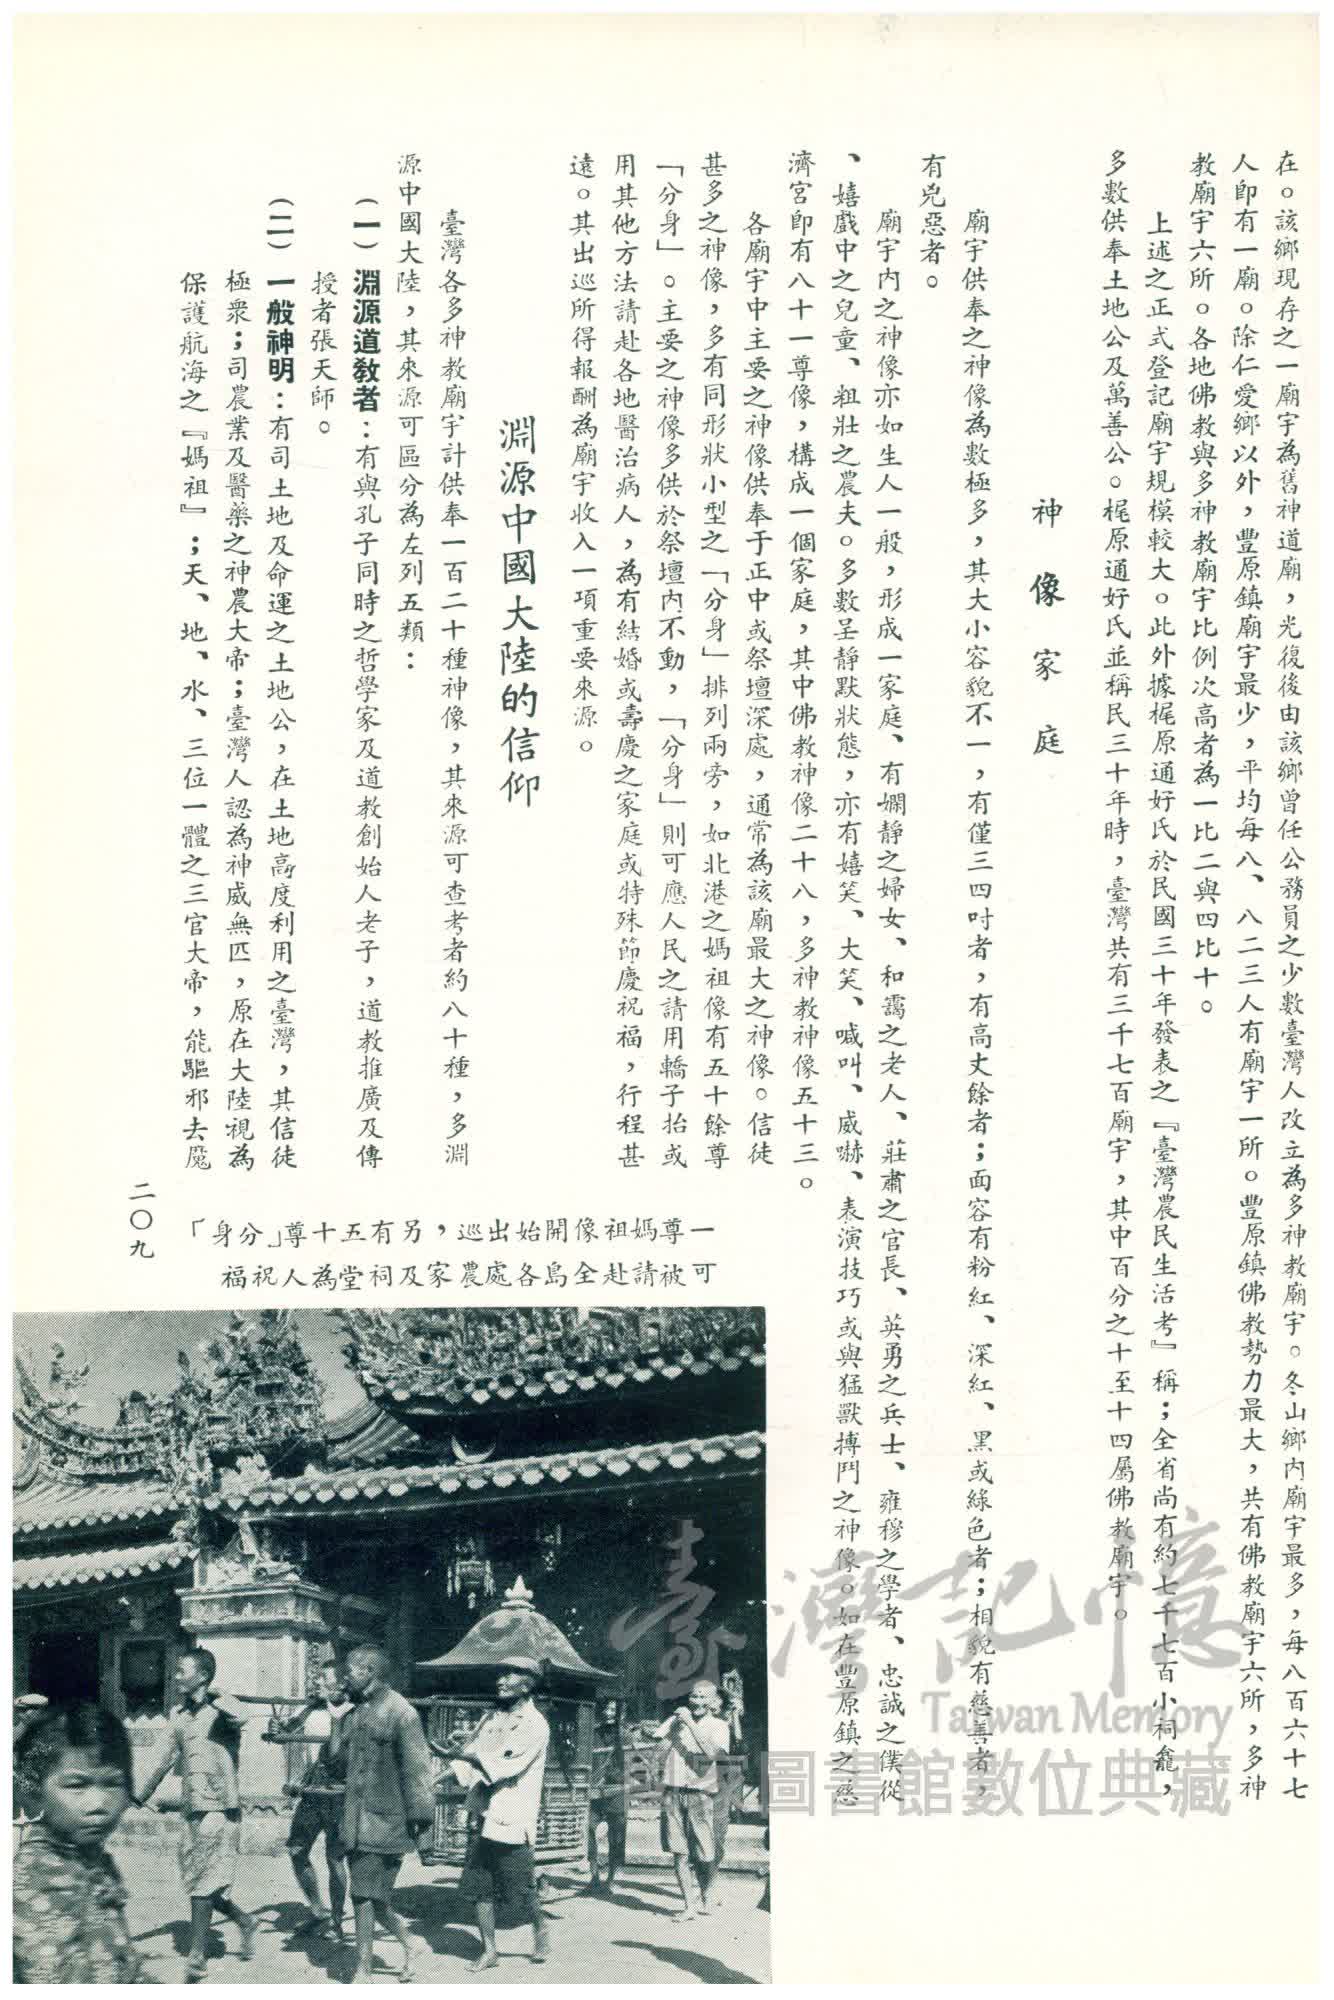 在。該鄉現存之一廟宇為舊神道廟，光復後由該鄉曾任公務員之少數臺灣人改立為多神教廟宇。冬山鄉內廟宇最多，每八百六十七
人卽有一廟。除仁愛鄉以外，豐原鎮廟宇最少，平均每八、八二三人有廟宇一所。豐原鎮佛教勢力最大，共有佛教廟宇六所，多神
教廟宇六所。各地佛教與多神教廟宇比例次高者為一比二與四比十。
上述之正式登記廟宇規模較大。此外據梶原通好氏於民國三十年發表之『臺灣農民生活考』稱；全省尚有約七千七百小祠龕，
多數供奉土地公及萬善公。梶原通好氏並稱民三十年時，臺灣共有三千七百廟宇，其中百分之十至十四屬佛教廟宇。
神像家庭
廟宇供奉之神像為數極多，其大小容貌不一，有僅三四吋者，有高丈餘者；面容有粉紅、深紅、黑或綠色者；相貌有慈善者，
有兇惡者。
廟宇內之神像亦如生人一般，形成一家庭、有嫻靜之婦女、和靄之老人、莊肅之官長、英勇之兵士、雍穆之學者、忠誠之僕從
、嬉戲中之兒童、粗壯之農夫。多數呈靜默狀態，亦有嬉笑、大笑、喊叫、威嚇、表演技巧或與猛獸搏鬥之神像。如在豐原鎮之慈
濟宮卽有八十一尊像，構成一個家庭，其中佛教神像二十八，多神教神像五十三。
各廟宇中主要之神像供奉于正中或祭壇深處，通常為該廟最大之神像。信徒
甚多之神像，多有同形狀小型之「分身」排列兩旁，如北港之媽祖像有五十餘尊
「分身」。主要之神像多供於祭壇內不動，「分身」則可應人民之請用轎子抬或
用其他方法請赴各地醫治病人，為有結婚或壽慶之家庭或特殊節慶祝福，行程甚
遠。其出巡所得報酬為廟宇收入一項重要來源。
淵源中國大陸的信仰
臺灣各多神教廟宇計供奉一百二十種神像，其來源可查考者約八十種，多淵
源中國大陸，其來源可區分為左列五類：
(一)淵源道教者：有與孔子同時之哲學家及道教創始人老子，道教推廣及傳
授者張天師。
(二)一般神明：有司土地及命運之土地公，在土地高度利用之臺灣，其信徒
極衆；司農業及醫藥之神農大帝；臺灣人認為神威無匹，原在大陸視為
保護航海之『媽祖』；天、地、水、三位一體之三官大帝，能驅邪去魔
二〇九
一尊媽祖像開始出巡，另有五十尊「分身」
可被請赴全島各處農家及祠堂為人祝福
臺灣記憶
Taiwan Memory
國家圖書館數位典藏